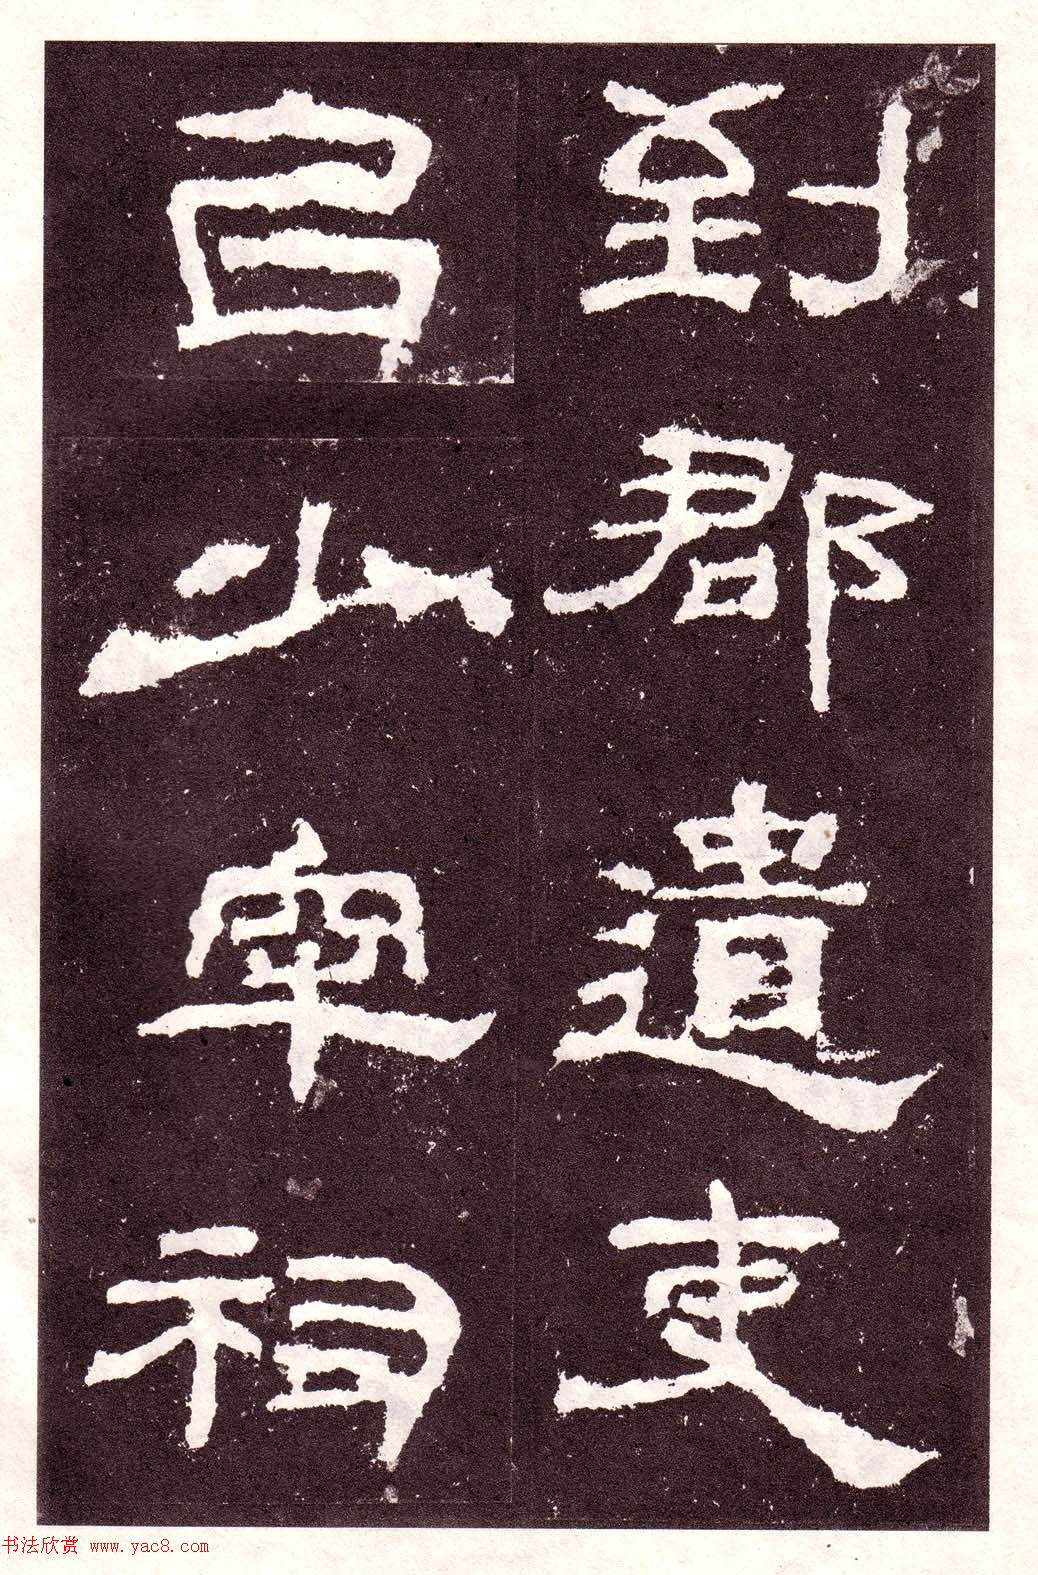 到郡遣吏
㠯少牢祠
书法欣赏 www.yac8.com